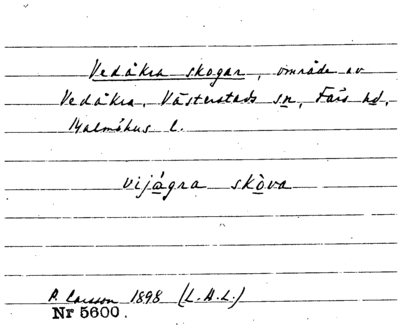 Vedåkra skogar, område av
Vedåkra, Västerstads sn, Färs hd,
Malmöhus l.
vijágra skòva
P. Larsson 1898 (L.A.L.)
Nr 5600.